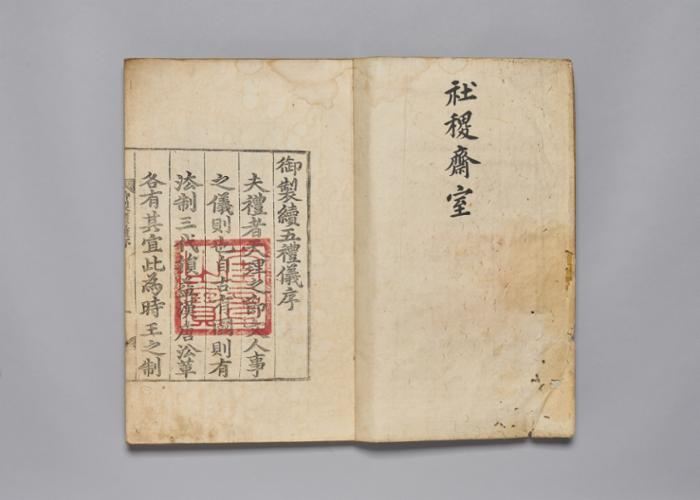 社稷齋室
御製續五禮儀序
夫禮者天理之節文人事
之儀則也自古有國則有
法制三代損益漢唐沿革
各有其宜此為時王之制